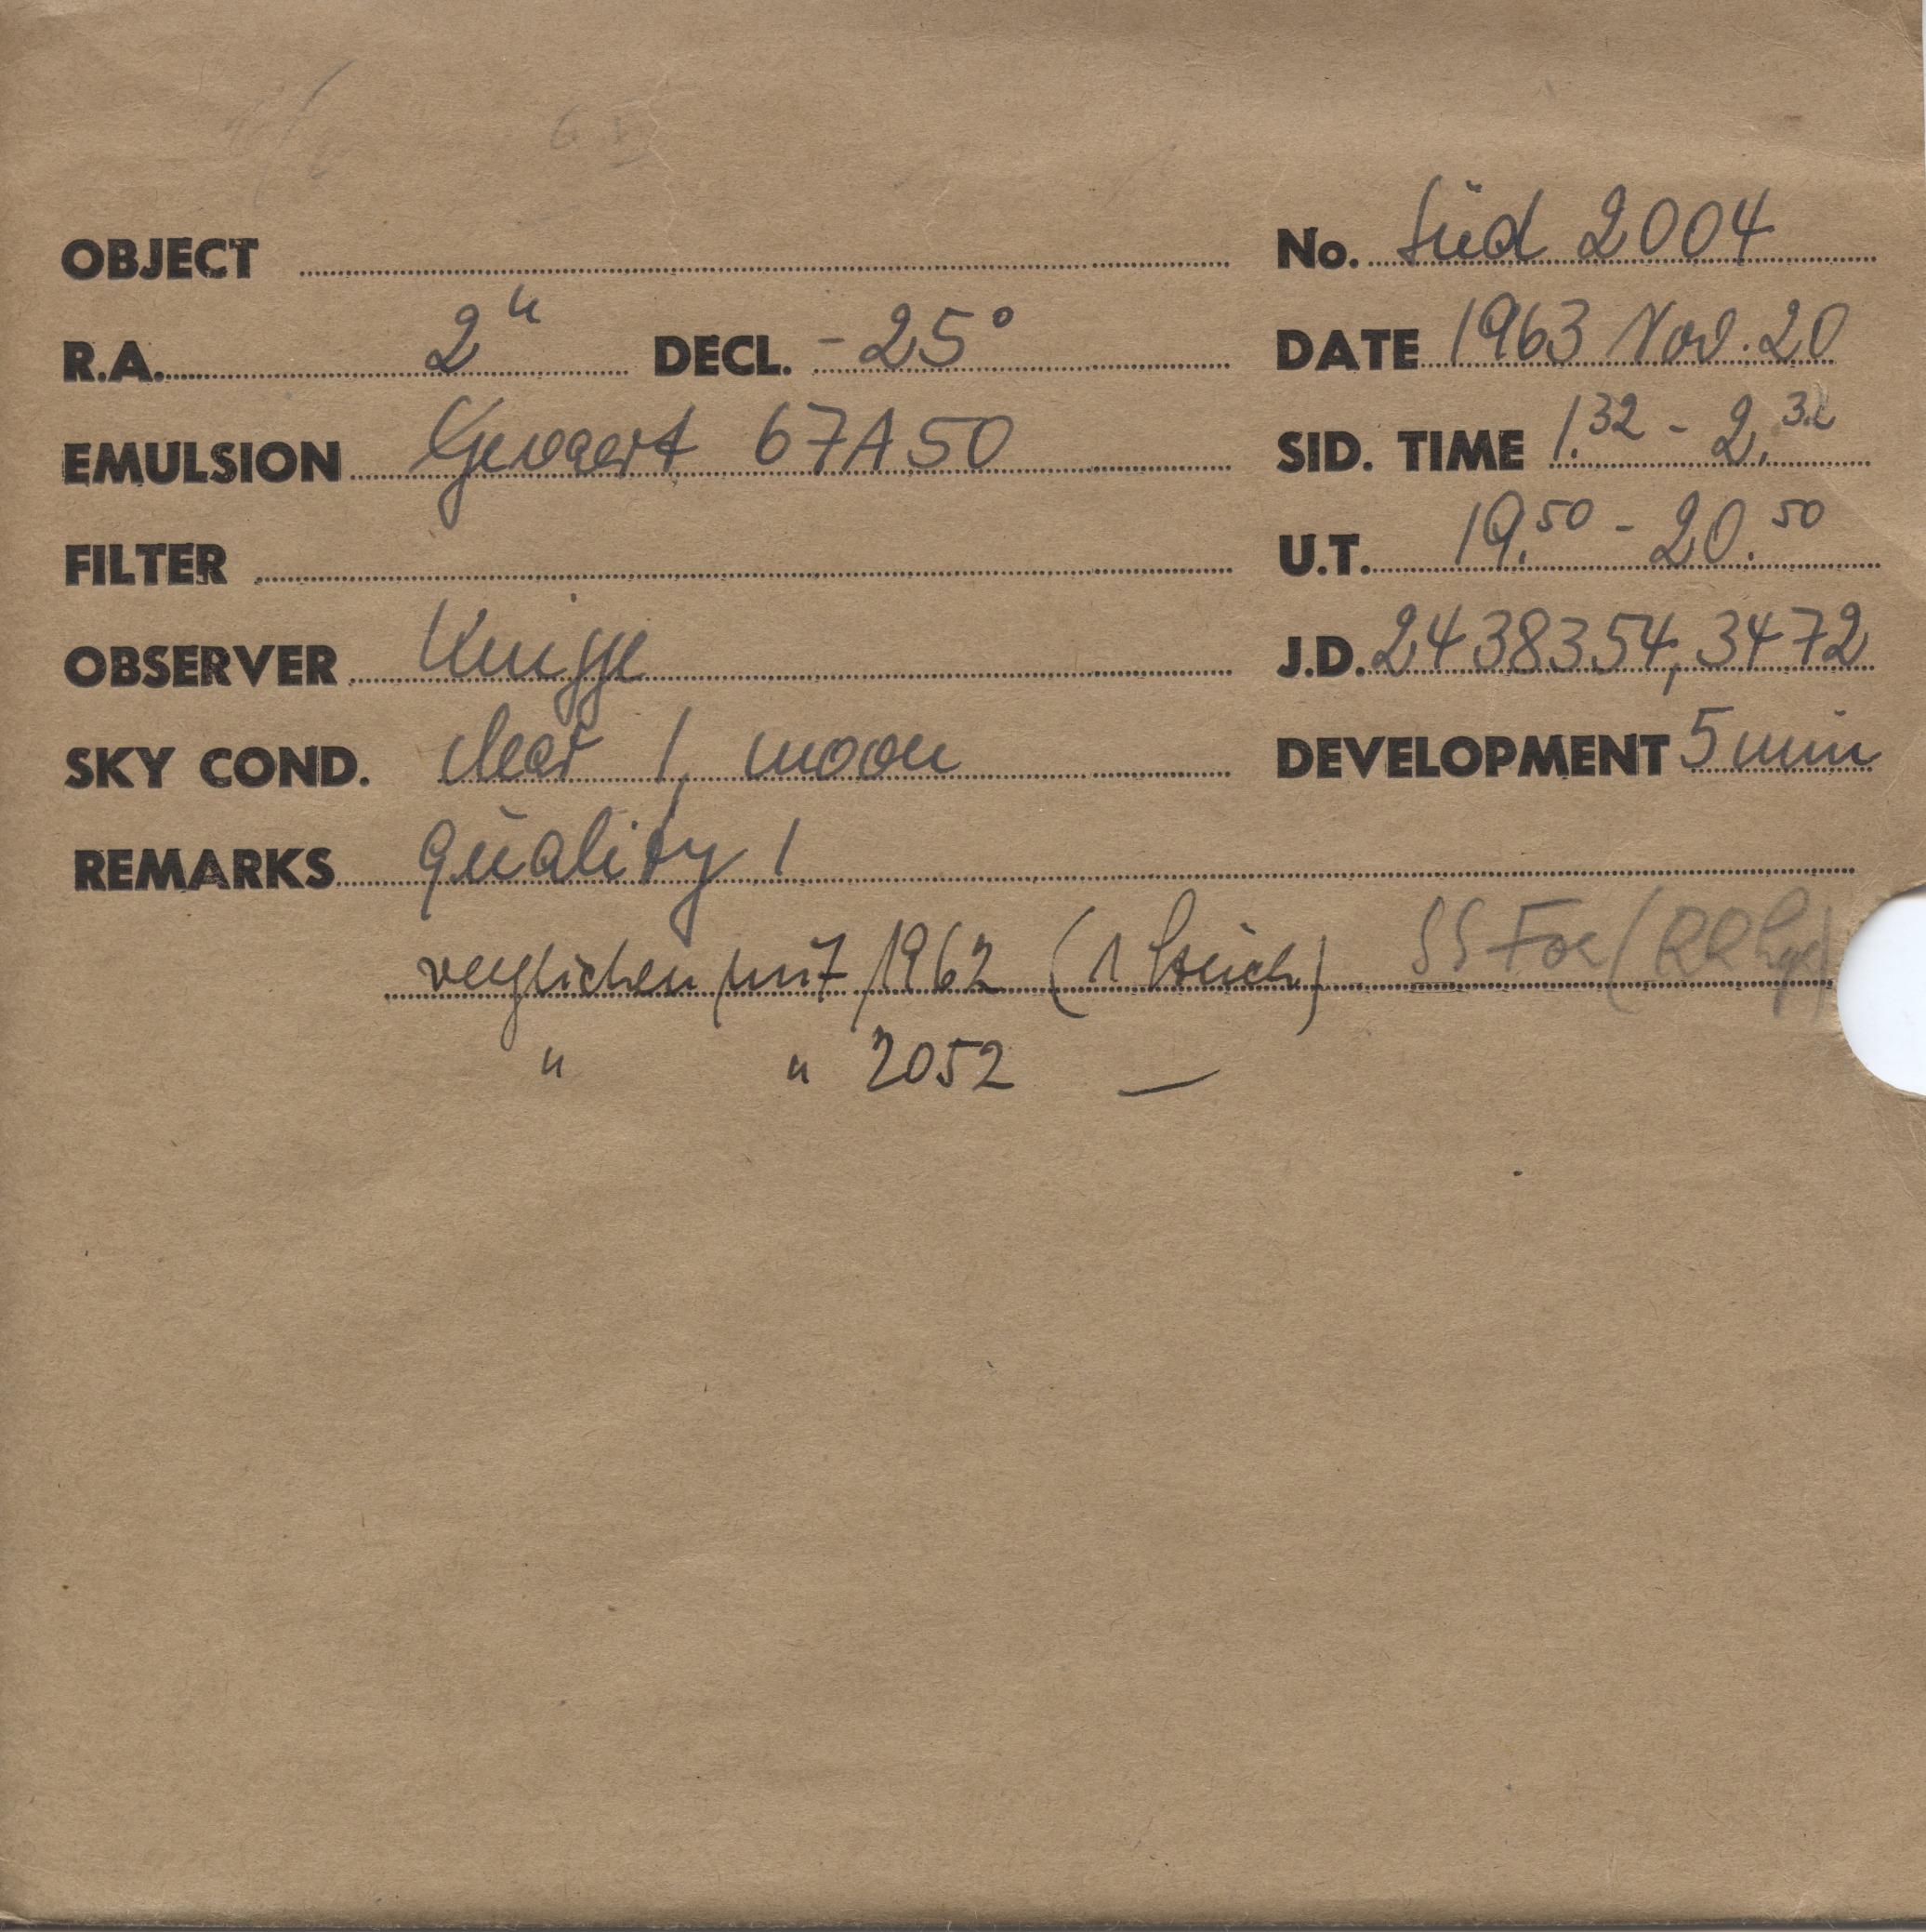 OBJECT No. Süd 2004
R.A. 2ʰ DECL. -25° DATE 1963 Nov. 20
EMULSION Gevaert 67A50 SID. TIME 1.32 - 2.32
FILTER U.T. 19.50 - 20.50
OBSERVER Knigge J.D. 2438354,3472
SKY COND. clear 1, moon DEVELOPMENT 5 min
REMARKS Quality 1
verglichen mit 1962 (1 Stück) SS For (RR
" " 2052 —